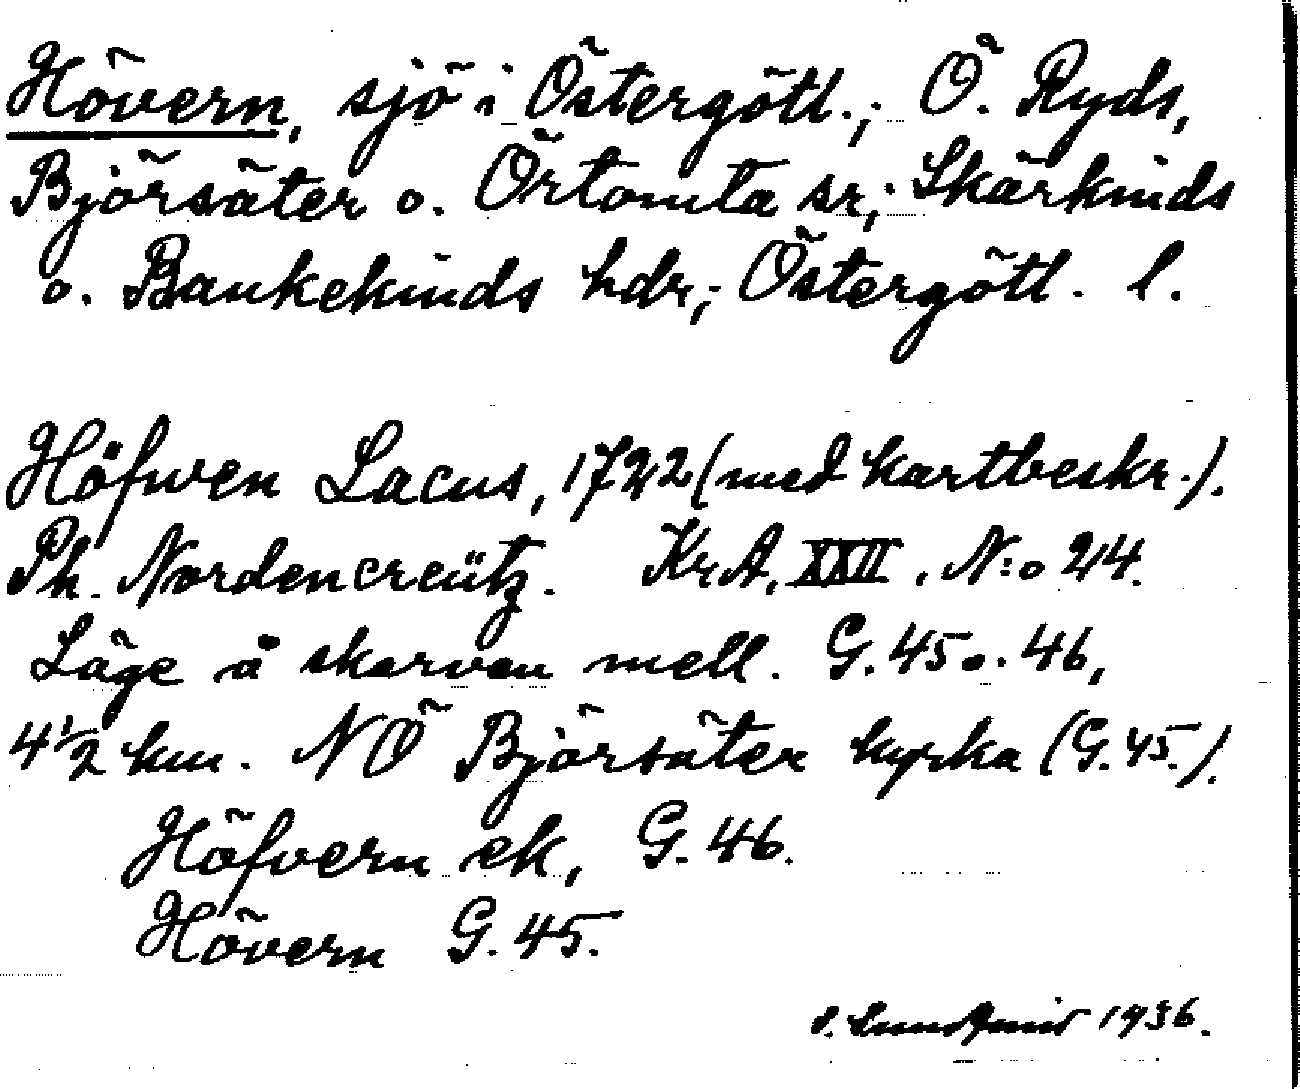 Hövern, sjö i Östergötl.; Ö. Ryds,
Björsäter o. Örtomta sr; Skärkinds
o. Bankekinds hdr; Östergötl. l.
Höfwen Lacus, 1722 (med kartbeskr.).
Ph. Nordencreütz. KrA, XXII, N:o 24.
Läge å skarven mell. G. 45 o. 46,
4 1/2 km. NÖ Björsäter kyrka (G. 45.).
Höfvern ek, G. 46.
Hövern G. 45.
1936.